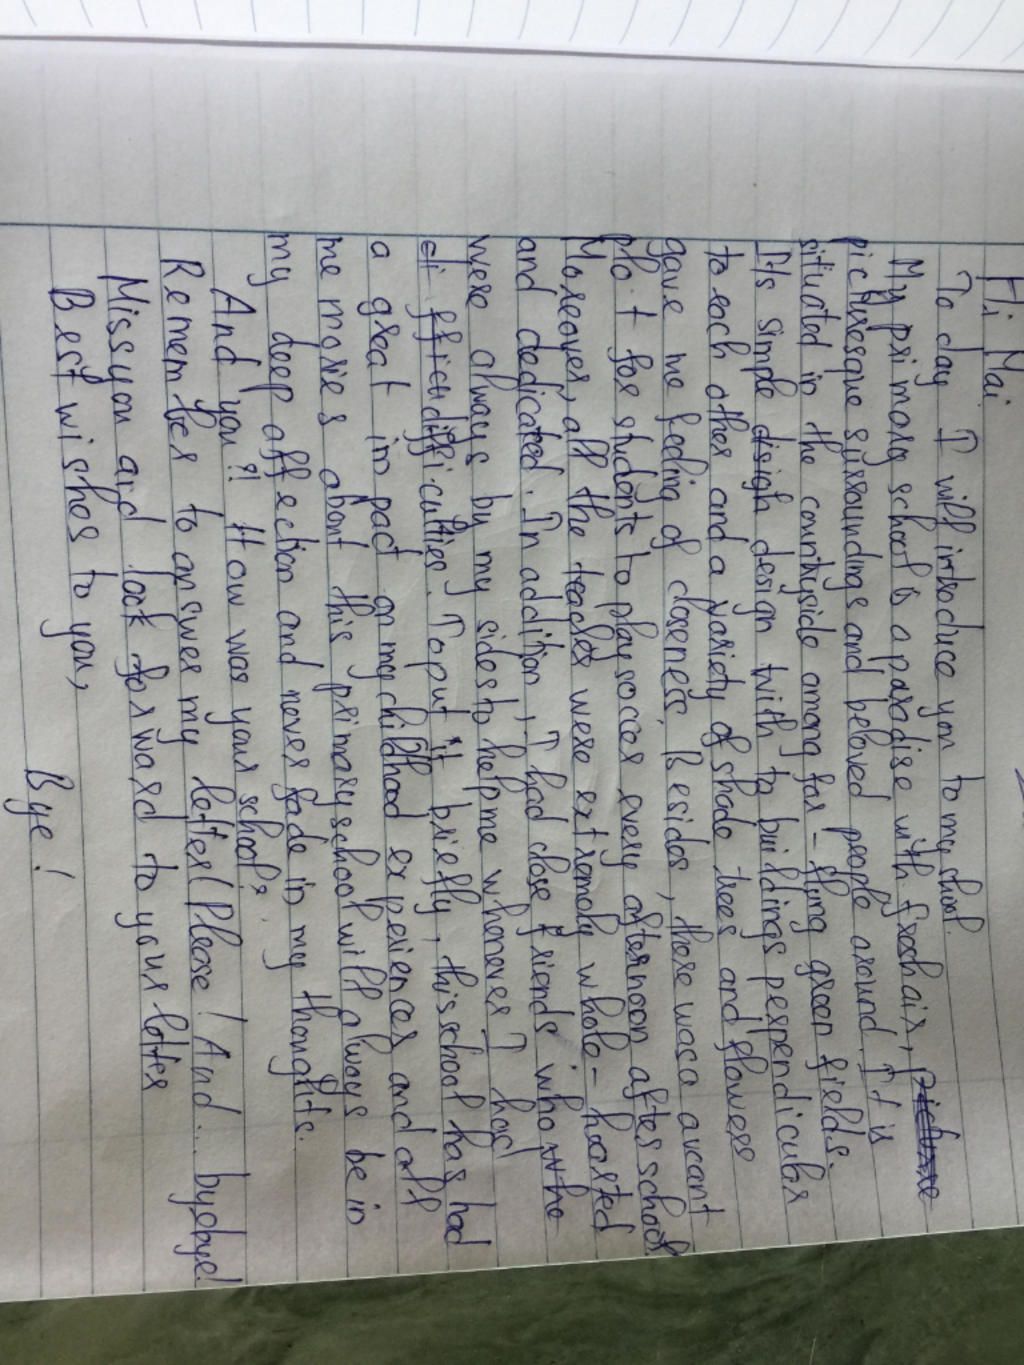 Hi Mai
To day I will introduce you to my school.
My primary school is a paradise with fresh air,
picturesque surroundings and beloved people around. It is
situated in the countryside among far - flung green fields.
It's simple design with to buildings perpendicular
to each other and a variety of shade trees and flowers
gave me feeling of closeness. Besides, there was a vacant
plo t for students to play soccer every afternoon after school
Moreover, all the teachers were extremely whole - hearted
and dedicated. In addition, I had close friends who
were always by my sides to help me whenever I had
difficulties. To put it briefly, this school has had
a great inpact on my childhood experiences and all
me mories about this primary school will always be in
my deep affection and never fade in my thoughts.
And you?! How was your school?
Remember to answer my letter! Please! And... byebye!
Miss you and look forward to your letter
Best wishes to you,
Bye!